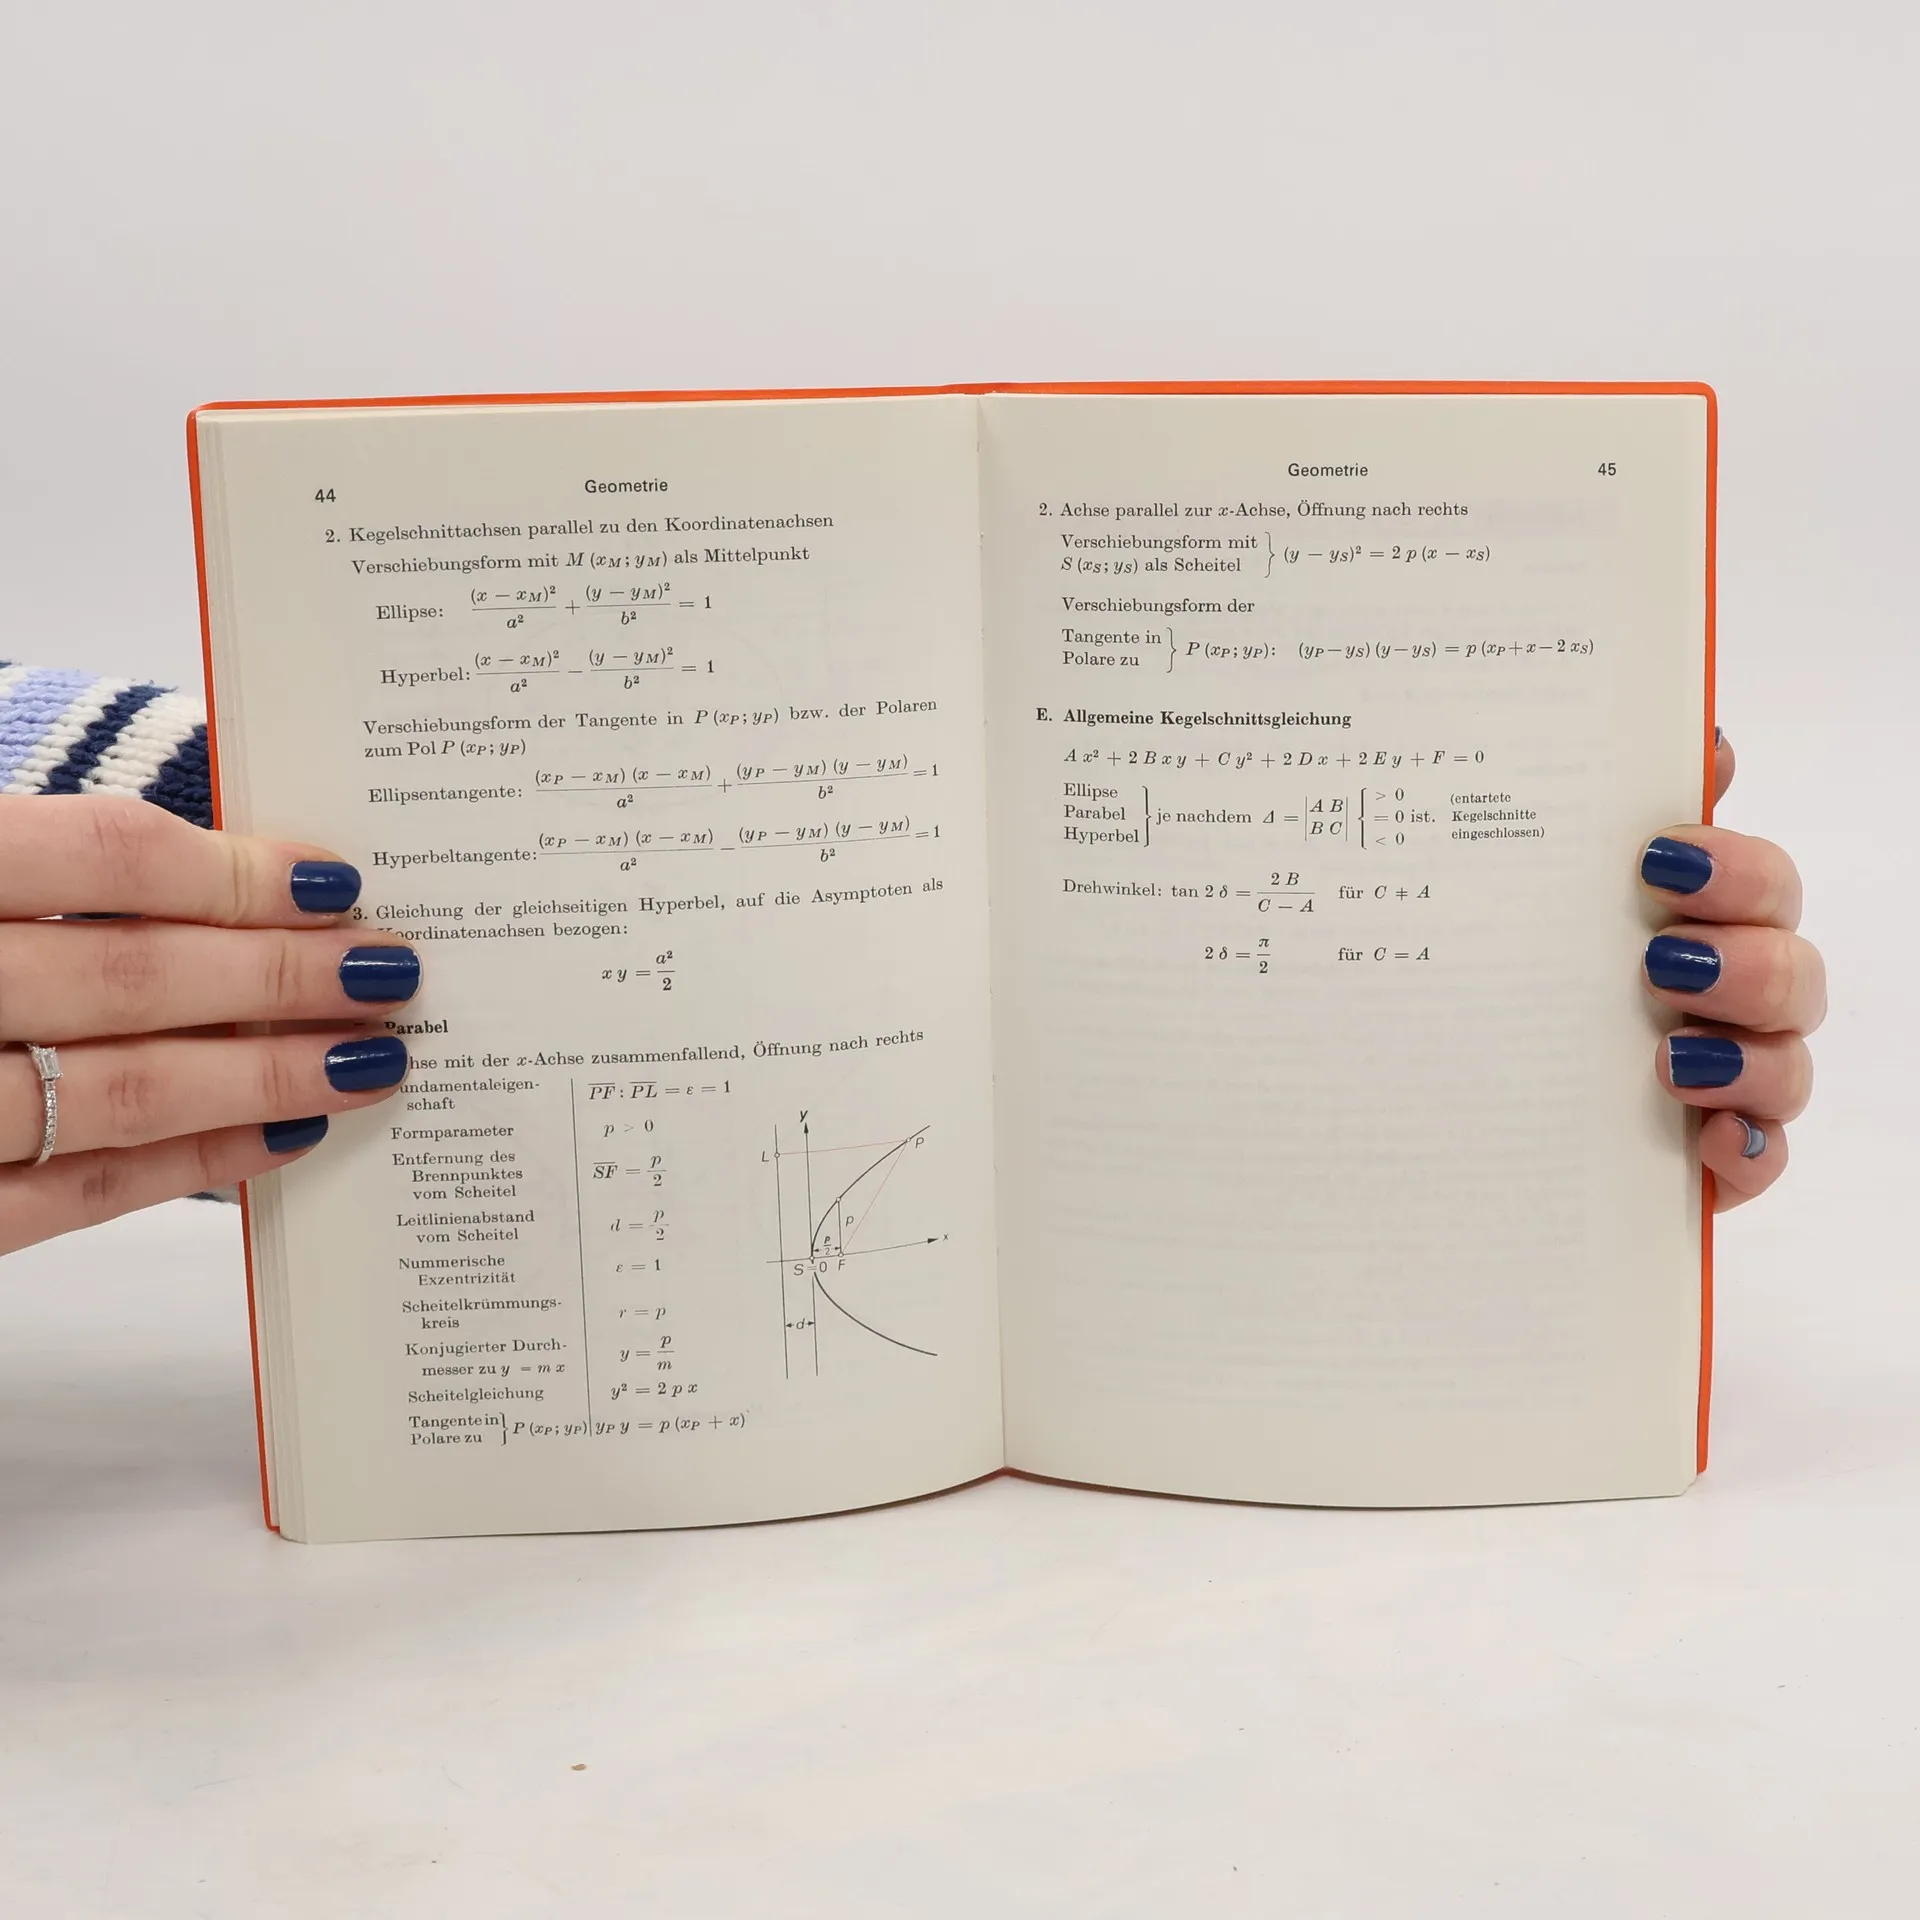 44 Geometrie
2. Kegelschnittachsen parallel zu den Koordinatenachsen
Verschiebungsform mit M (x_M; y_M) als Mittelpunkt
Ellipse: (x − x_M)²/a² + (y − y_M)²/b² = 1
Hyperbel: (x − x_M)²/a² − (y − y_M)²/b² = 1
Verschiebungsform der Tangente in P (x_P; y_P) bzw. der Polaren
zum Pol P (x_P; y_P)
Ellipsentangente: (x_P − x_M) (x − x_M)/a² + (y_P − y_M) (y − y_M)/b² = 1
Hyperbeltangente: (x_P − x_M) (x − x_M)/a² − (y_P − y_M) (y − y_M)/b² = 1
3. Gleichung der gleichseitigen Hyperbel, auf die Asymptoten als
oordinatenachsen bezogen:
x y = a²/2
Parabel
hse mit der x-Achse zusammenfallend, Öffnung nach rechts
undamentaleigen-
schaft
P̅F̅ : P̅L̅ = ε = 1
Formparameter p > 0
Entfernung des
Brennpunktes
vom Scheitel
S̅F̅ = p/2
Leitlinienabstand
vom Scheitel
d = p/2
Nummerische
Exzentrizität
ε = 1
Scheitelkrümmungs-
kreis
r = p
Konjugierter Durch-
messer zu y = m x
y = p/m
Scheitelgleichung y² = 2 p x
Tangente in
Polare zu
} P (x_P; y_P) y_P y = p (x_P + x)
y
L
P
p
p/2
x
S=0 F
d
Geometrie 45
2. Achse parallel zur x-Achse, Öffnung nach rechts
Verschiebungsform mit
S (x_S; y_S) als Scheitel
} (y − y_S)² = 2 p (x − x_S)
Verschiebungsform der
Tangente in
Polare zu
} P (x_P; y_P): (y_P − y_S) (y − y_S) = p (x_P + x − 2 x_S)
E. Allgemeine Kegelschnittsgleichung
A x² + 2 B x y + C y² + 2 D x + 2 E y + F = 0
Ellipse
Parabel
Hyperbel
} je nachdem Δ = |A B
B C|
{ > 0
= 0 ist.
< 0
(entartete
Kegelschnitte
eingeschlossen)
Drehwinkel: tan 2 δ = 2 B/(C − A) für C ≠ A
2 δ = π/2 für C = A